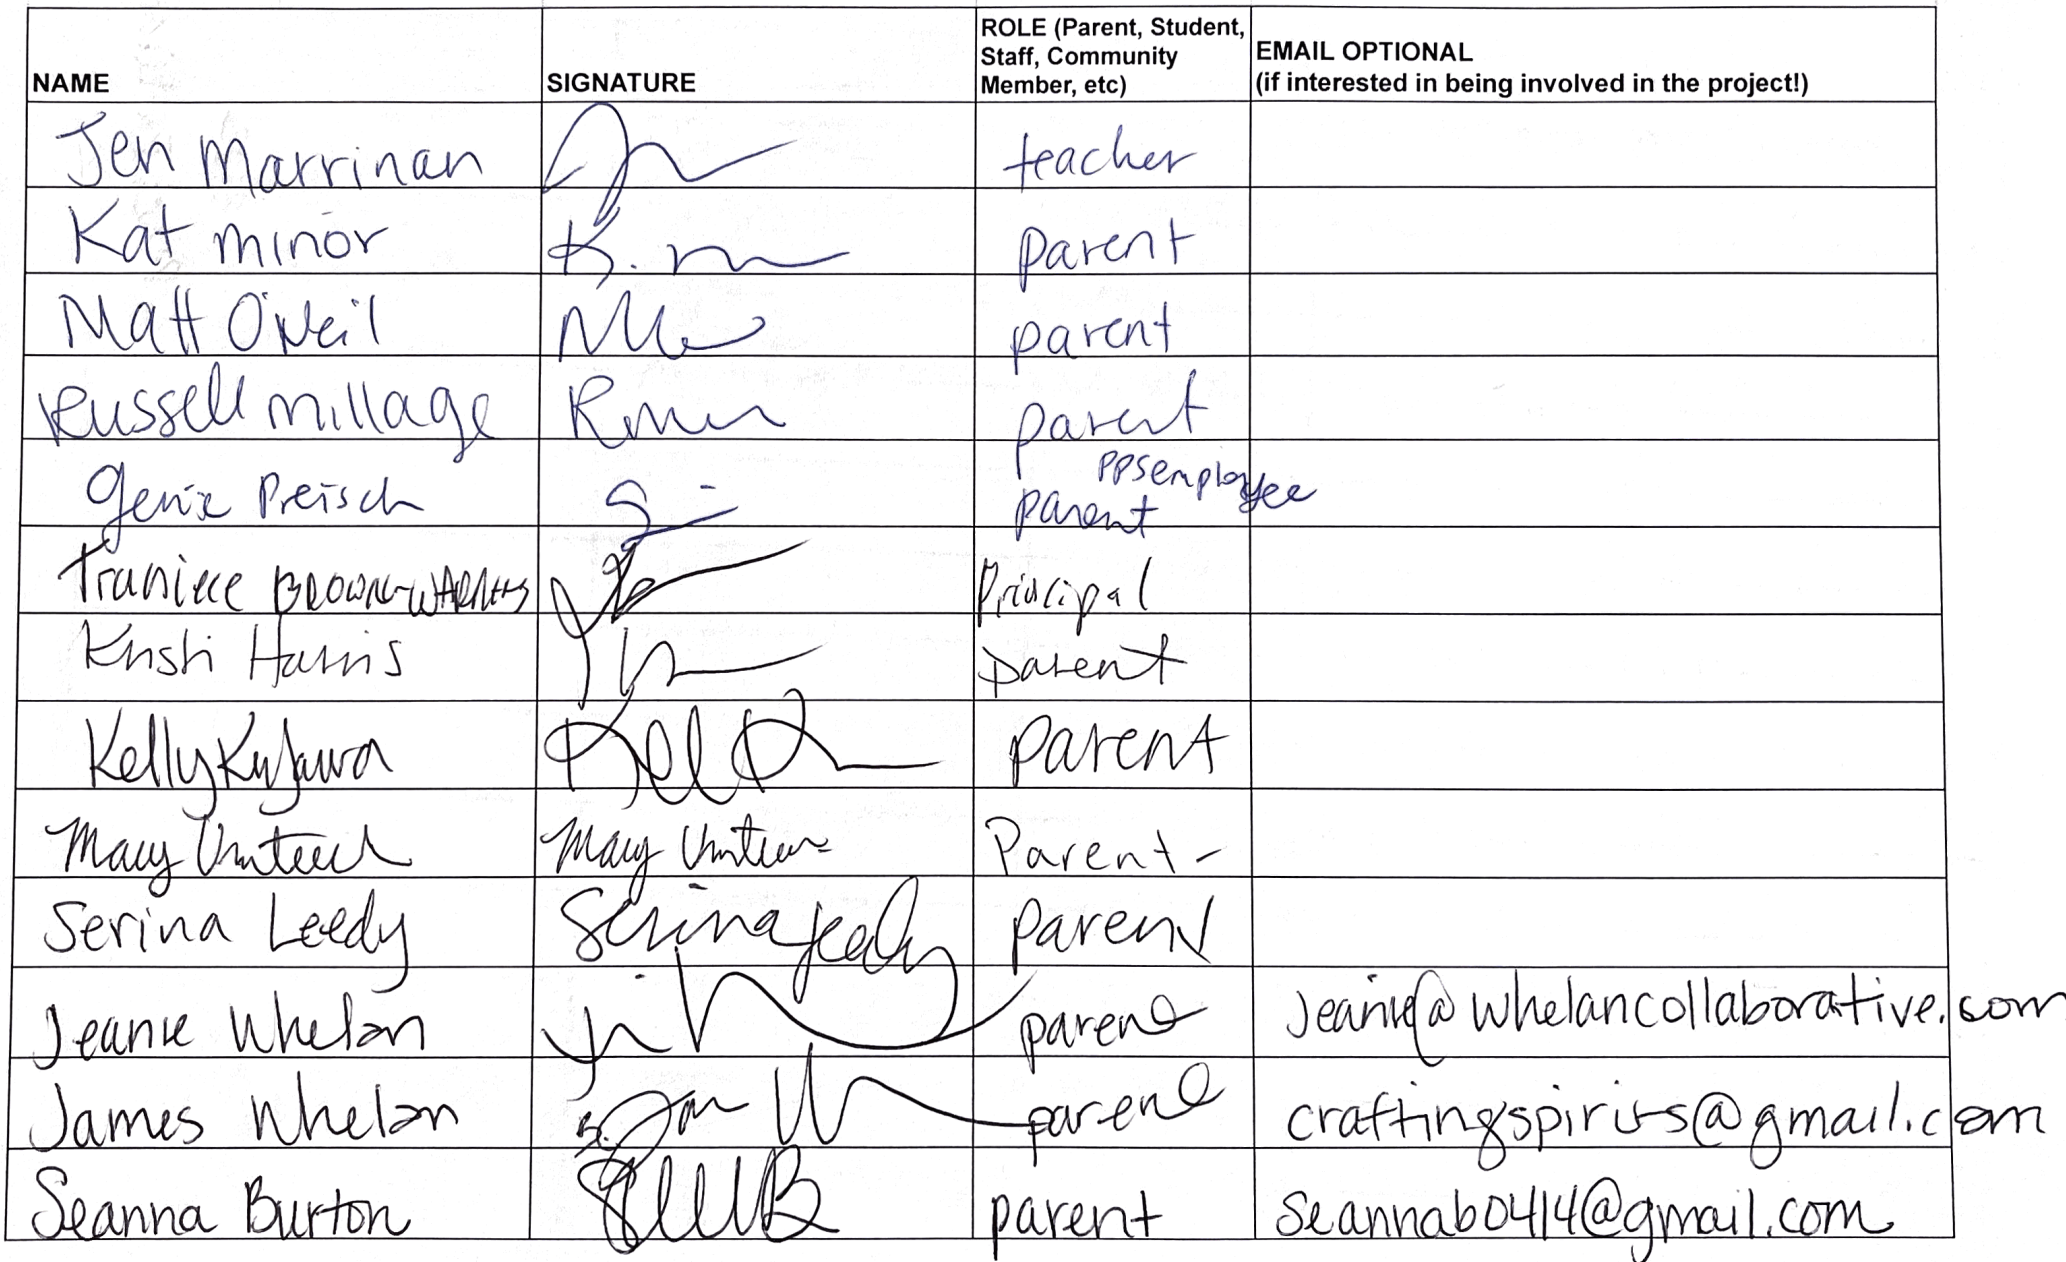 ROLE (Parent, Student,
Staff, Community
Member, etc)
EMAIL OPTIONAL
(if interested in being involved in the project!)
NAME SIGNATURE
Jen Marrinan teacher
Kat Minor K. m parent
Matt O'Neil parent
Russell Millage parent
PPS employee
Genie Preisch parent
Principal
Kristi Harris parent
Kelly Kujawa parent
Macy Macy Parent-
Serina Leedy Serina Leedy parent
Jeanie Whelan parent jeanie@whelancollaborative.com
James Whelan parent craftingspirits@gmail.com
Seanna Burton parent seannab0414@gmail.com